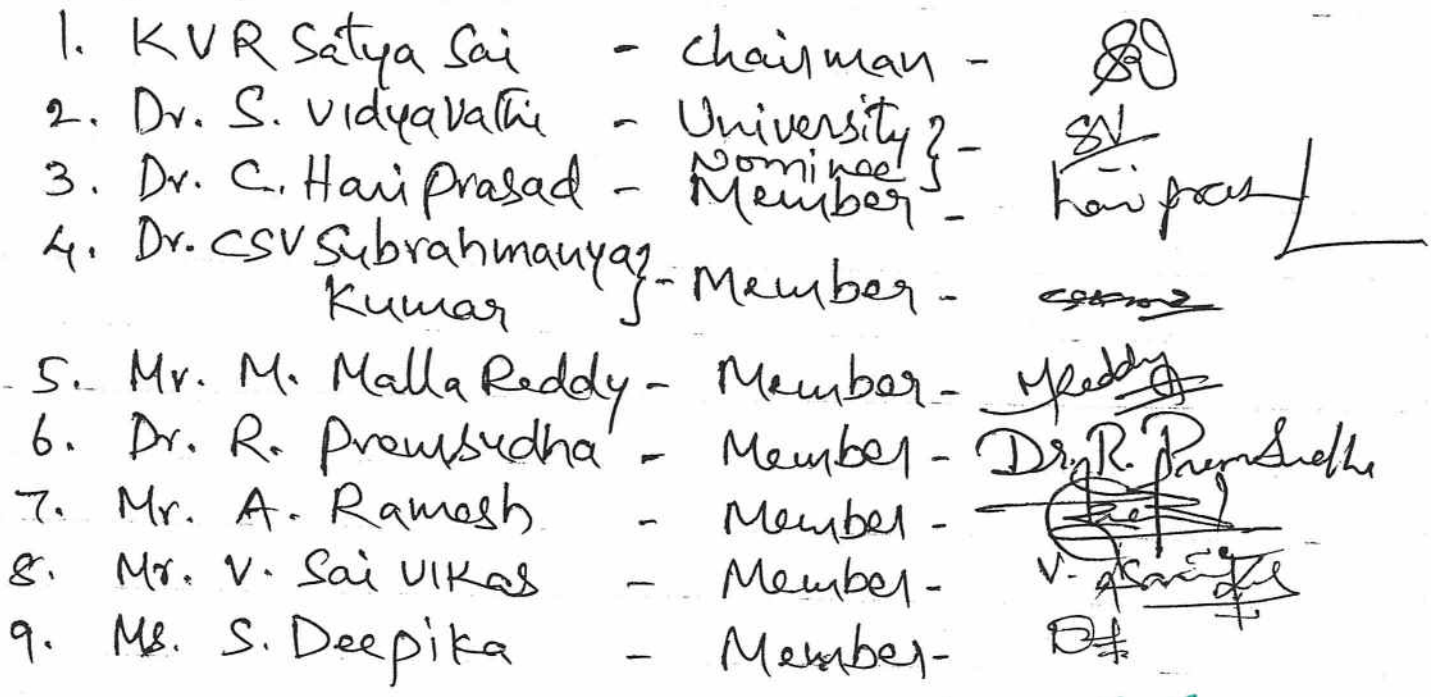 1. KVR Satya Sai - Chairman -
2. Dr. S. Vidyavathi - University } - SV
Nominee
3. Dr. C. Hari Prasad - Member - Hari Pras
4. Dr. CSV Subrahmanya } - Member -
Kumar
5. Mr. M. Malla Reddy - Member - MReddy
6. Dr. R. Premsudha - Member - Dr. R. PremSudha
7. Mr. A. Ramesh - Member -
8. Mr. V. Sai Vikas - Member - V.
9. Ms. S. Deepika - Member -